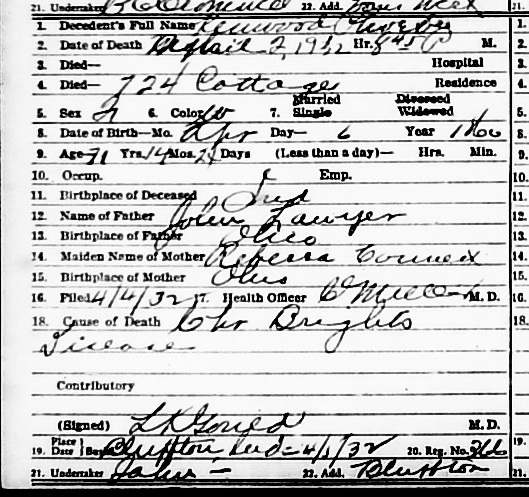 21. Undertaker 22. Add.
1. Decedent's Full Name
2. Date of Death April 2, 1932 Hr. 845 P M.
3. Died— Hospital
4. Died— 724 Cottage Residence
5. Sex 6. Color W 7. Married Single Divorced Widowed
8. Date of Birth—Mo. Apr Day— 6 Year 1860
9. Age 71 Yrs. Mos. Days (Less than a day)— Hrs. Min.
10. Occup. Emp.
11. Birthplace of Deceased Ind
12. Name of Father John Lawyer
13. Birthplace of Father Ohio
14. Maiden Name of Mother Rebecca
15. Birthplace of Mother Ohio
16. Filed 4/4/32 17. Health Officer M. D.
18. Cause of Death Chr Brights
Disease
Contributory
(Signed) M. D.
19. Place Date Bluffton Ind 20. Reg. No. 366
21. Undertaker Jahn 22. Add. Bluffton